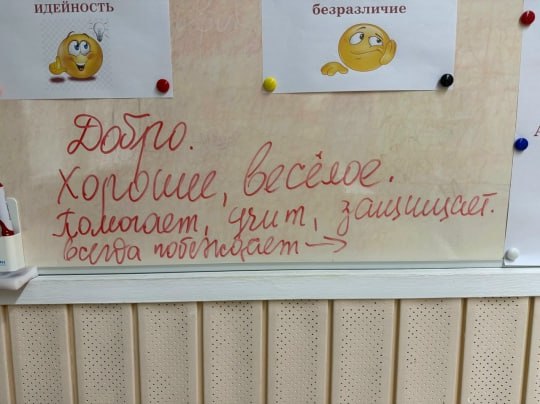 идейность
безразличие
Добро.
Хорошее, весёлое.
Помогает, учит, защищает.
всегда побеждает →